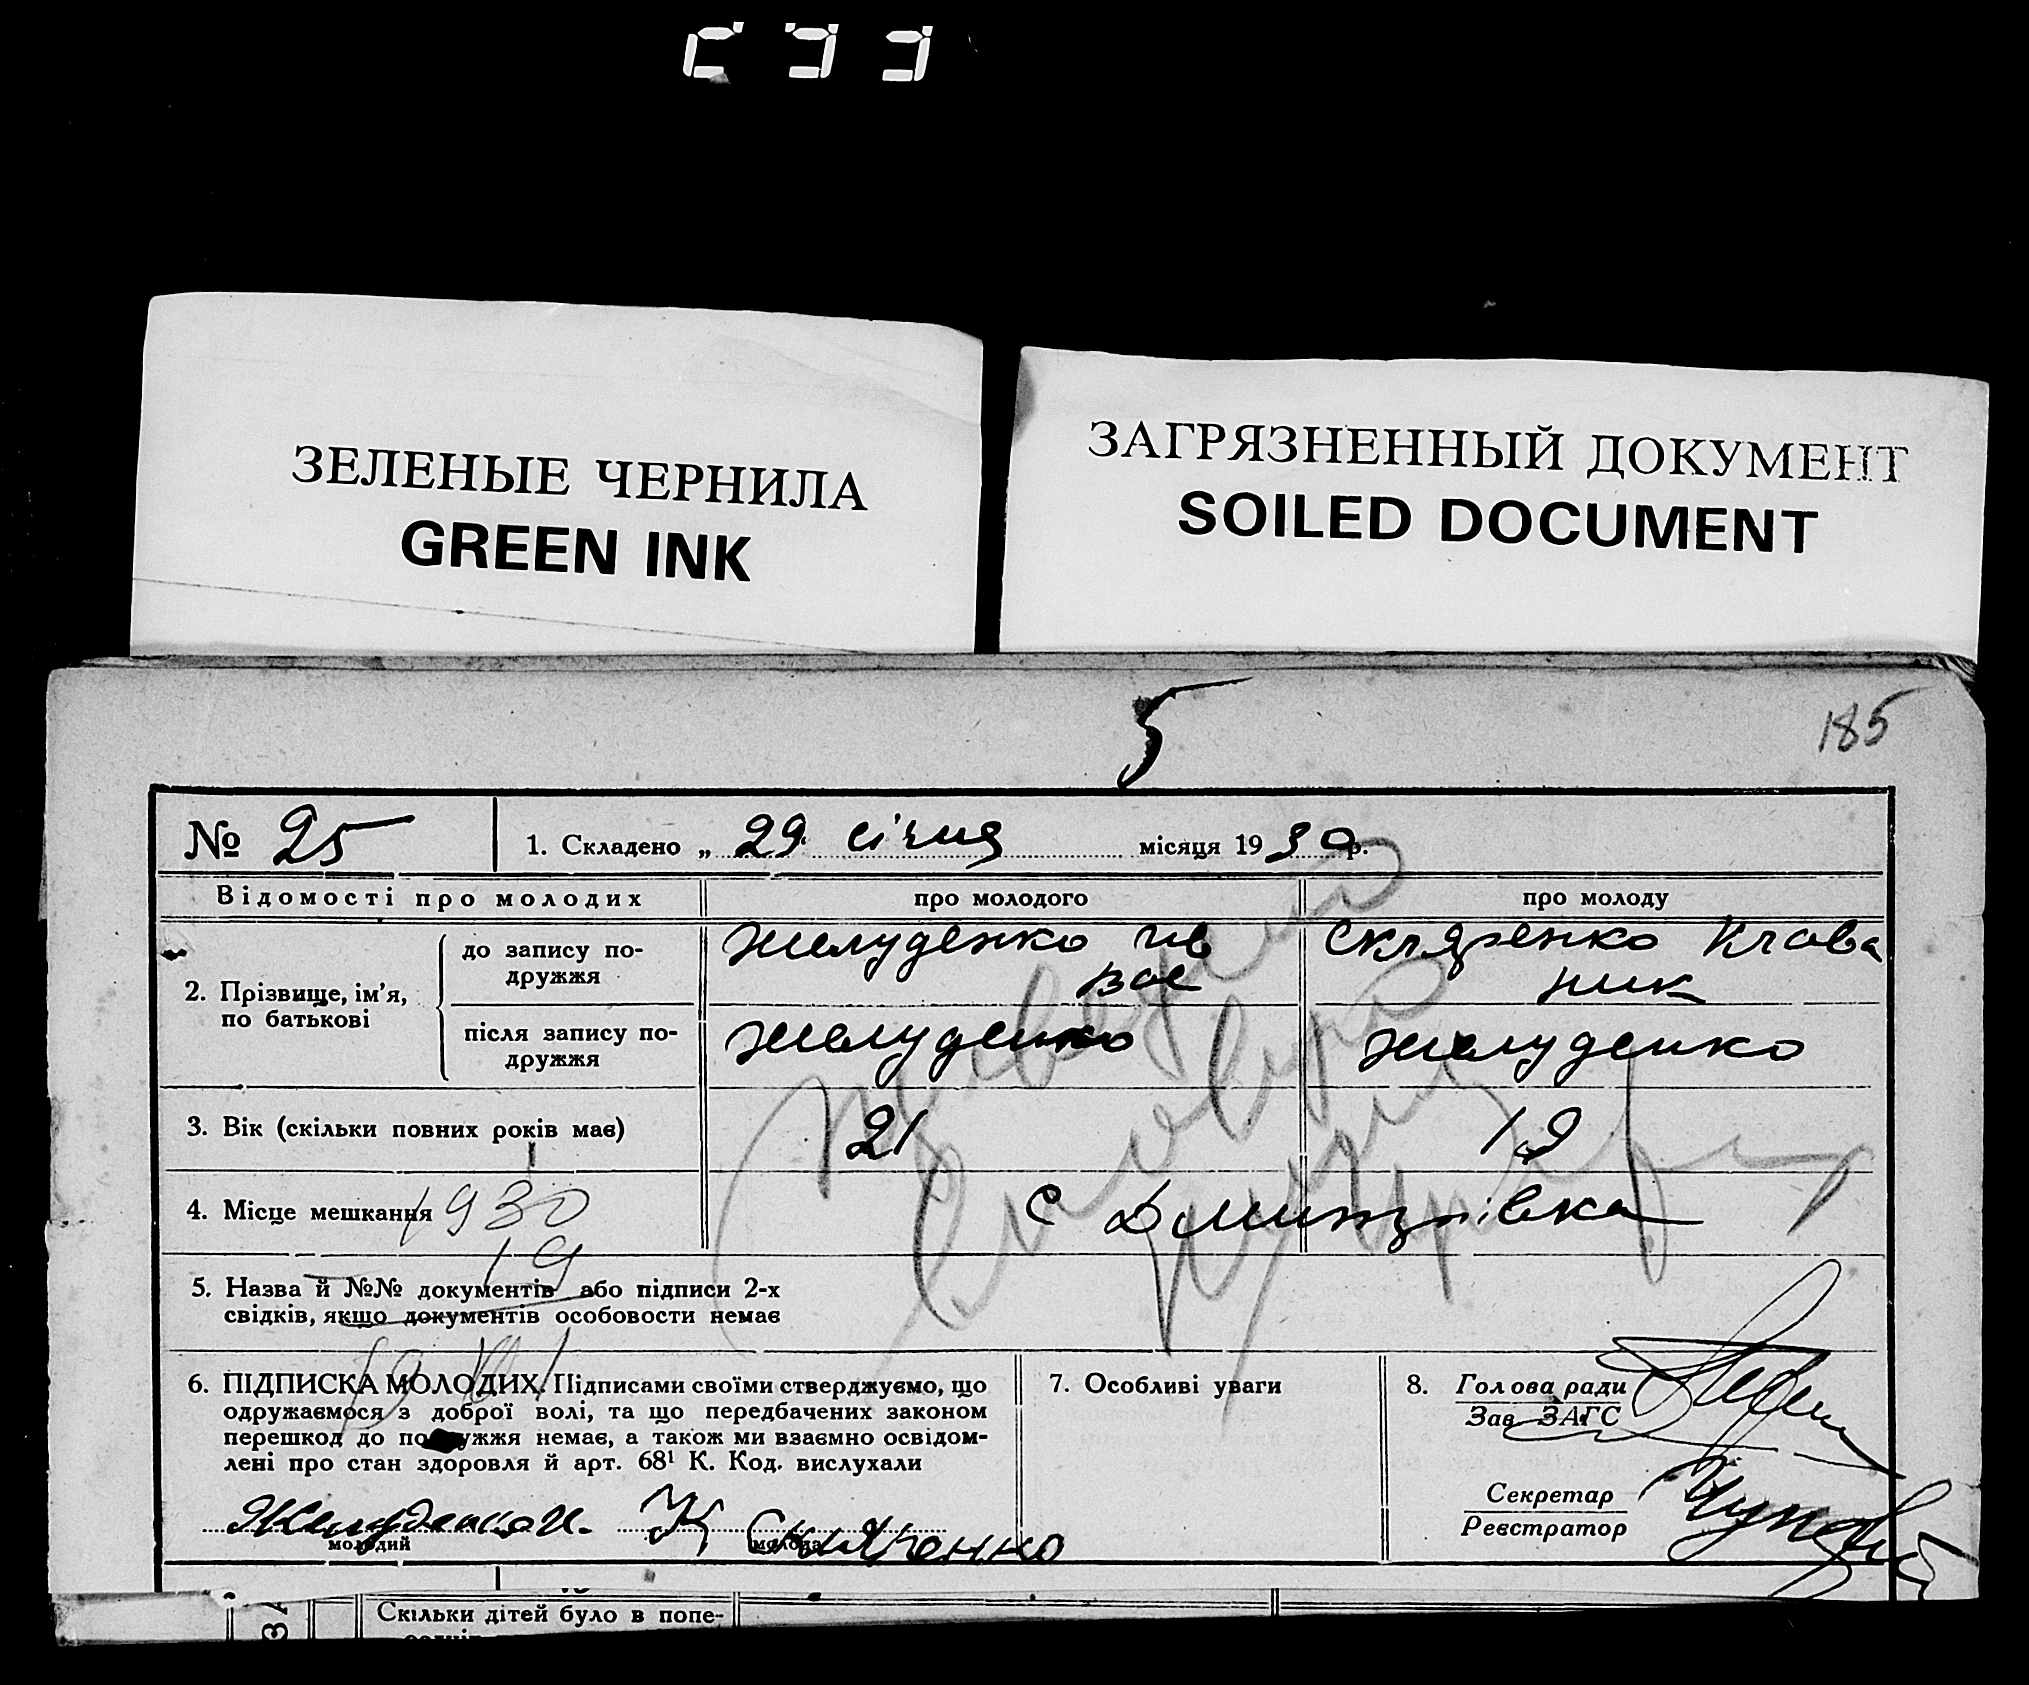 ЗЕЛЕНЫЕ ЧЕРНИЛА
GREEN INK
ЗАГРЯЗНЕННЫЙ ДОКУМЕНТ
SOILED DOCUMENT
5
185
№ 25
1. Складено „ 29 січня місяця 1930 р.
Відомості про молодих
про молодого
про молоду
2. Прізвище, ім’я,
по батькові
до запису по-
дружжя
Желуденко Ів
Вас
Скляренко Клава
Ник
після запису по-
дружжя
Желуденко
Желуденко
3. Вік (скільки повних років має)
21
19
4. Місце мешкання
1930
с Дмитрівка
19
5. Назва й №№ документів або підписи 2-х
свідків, якщо документів особовости немає
6. ПІДПИСКА МОЛОДИХ. Підписами своїми стверджуємо, що
одружаємося з доброї волі, та що передбачених законом
перешкод до подружжя немає, а також ми взаємно освідом-
лені про стан здоровля й арт. 68¹ К. Код. вислухали
Желуденко И.
К Скляренко
молодий
молода
7. Особливі уваги
8. Голова ради
Зав ЗАГС
Секретар
Реєстратор
Скільки дітей було в попе-